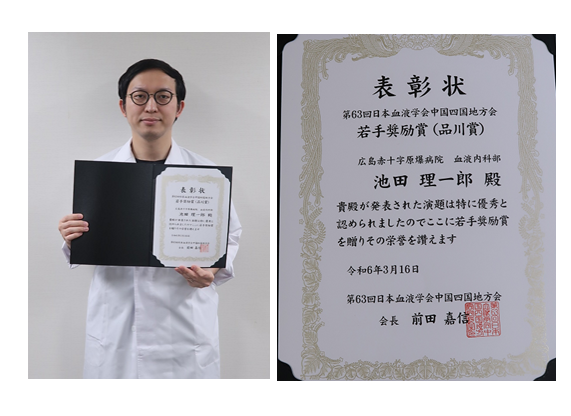 表彰状
第63回日本血液学会中国四国地方会
若手奨励賞(品川賞)
広島赤十字原爆病院 血液内科部
池田 理一郎 殿
貴殿が発表された演題は特に優秀と
認められましたのでここに若手奨励賞
を贈りその栄誉を讃えます
令和6年3月16日
第63回日本血液学会中国四国地方会
会長 前田 嘉信
表彰状
若手奨励賞(品川賞)
池田 理一郎 殿